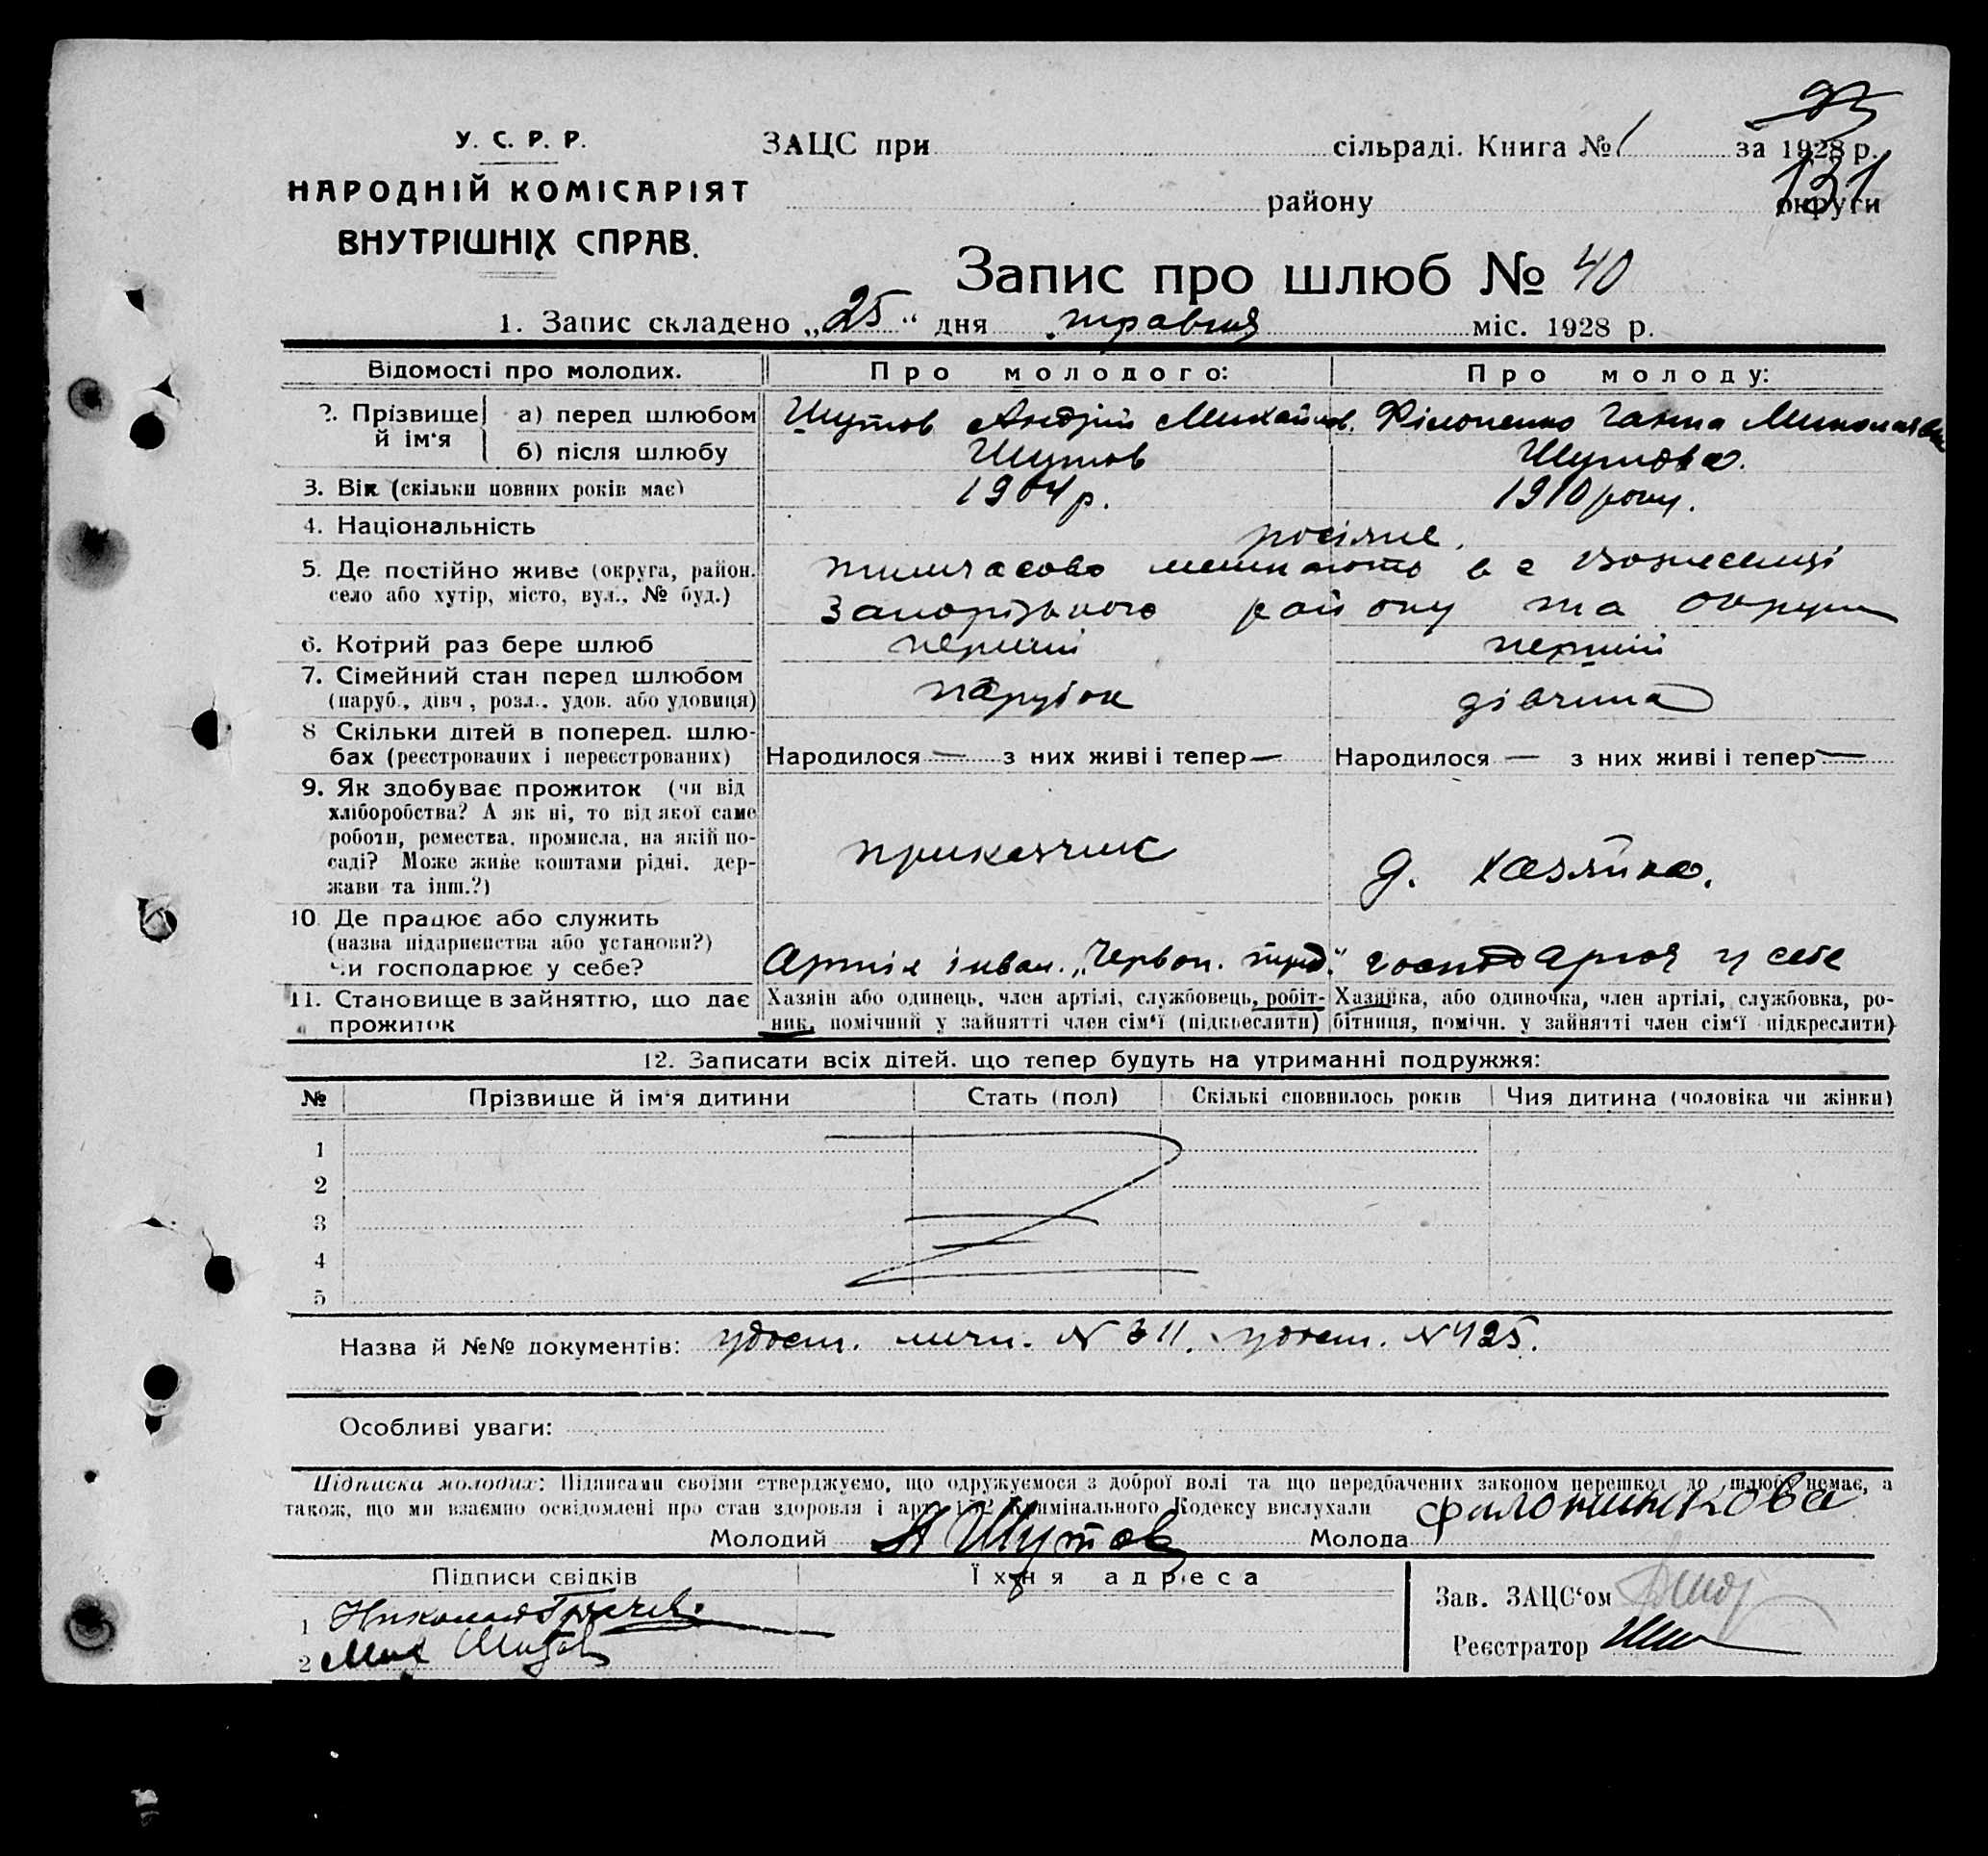 93
У. С. Р. Р.
НАРОДНІЙ КОМІСАРІЯТ
ВНУТРІШНІХ СПРАВ.
ЗАЦС при сільраді. Книга № 1 за 1928 р.
131
району округи
Запис про шлюб № 40
1. Запис складено „25“ дня травня міс. 1928 р.
Відомості про молодих. Про молодого: Про молоду:
2. Прізвище й ім'я а) перед шлюбом Шутов Андрій Михайлов. Філоненко Ганна Миколаївна
б) після шлюбу Шутов Шутова.
3. Вік (скільки повних років має) 1904 р. 1910 року.
4. Національність росіяне.
5. Де постійно живе (округа, район. тимчасово мешкають в с Вознесенці
село або хутір, місто, вул., № буд.) Запорізького району та округи
6. Котрий раз бере шлюб перший перший
7. Сімейний стан перед шлюбом
(паруб., дівч., розл., удов. або удовиця) парубок дівчина
8 Скільки дітей в поперед. шлю-
бах (реєстрованих і нереєстрованих) Народилося — з них живі і тепер — Народилося — з них живі і тепер —
9. Як здобуває прожиток (чи від
хліборобства? А як ні, то від якої саме
роботи, ремества, промисла, на якій по-
саді? Може живе коштами рідні, дер-
жави та інш.?) приказчик д. хазяйка.
10. Де працює або служить
(назва підприємства або установи?)
Чи господарює у себе? Артіль інвал. „Червон. “ господарює у себе
11. Становище в зайняттю, що дає Хазяїн або одинець, член артілі, службовець, робіт- Хазяйка, або одиночка, член артілі, службовка, ро-
прожиток ник, помічний у зайнятті член сім'ї (підкреслити) бітниця, помічн. у зайнятті член сім'ї підкреслити)
12. Записати всіх дітей, що тепер будуть на утриманні подружжя:
№ Прізвище й ім'я дитини Стать (пол) Скількі сповнилось років Чия дитина (чоловіка чи жінки)
1
2
3
4
5
Назва й №№ документів: удост. личн. N 311. удост. N 425.
Особливі уваги:
Підписка молодих: Підписами своїми стверджуємо, що одружуємося з доброї волі та що передбачених законом перешкод до шлюбу немає, а
також, що ми взаємно освідомлені про стан здоровля і арт. Кримінального Кодексу вислухали
Молодий А Шутов Молода Филоненкова
Підписи свідків Їхня адреса
1 Николай Грачев
2 Мих
Зав. ЗАЦС'ом
Реєстратор